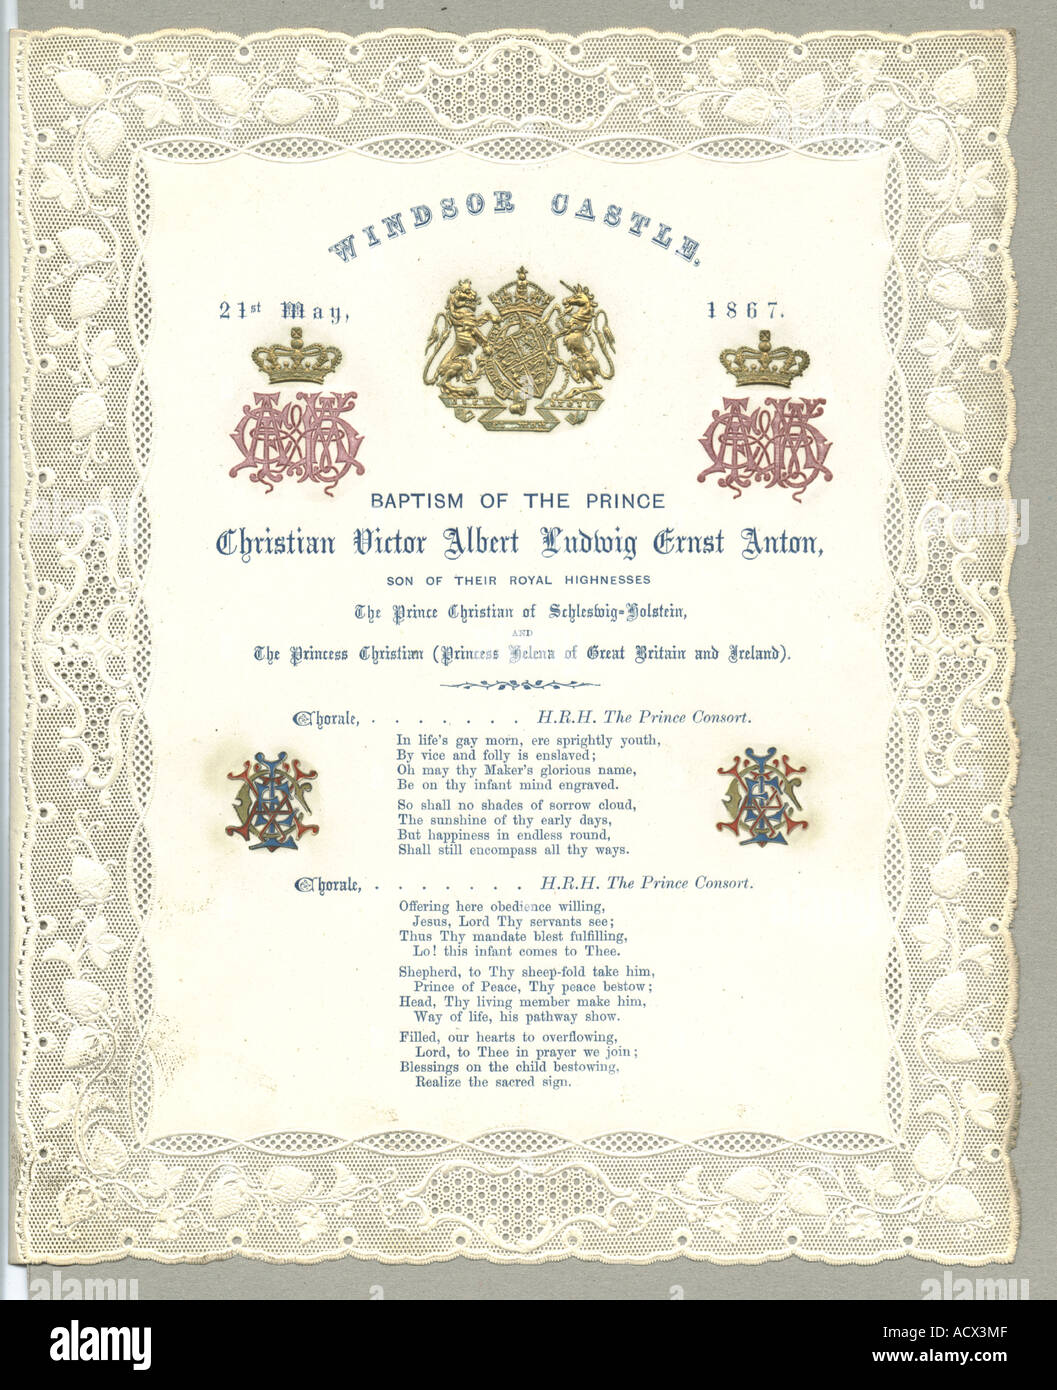 WINDSOR CASTLE,
21st May, 1867.
BAPTISM OF THE PRINCE
Christian Victor Albert Ludwig Ernst Anton,
SON OF THEIR ROYAL HIGHNESSES
The Prince Christian of Schleswig-Holstein,
AND
The Princess Christian (Princess Helena of Great Britain and Ireland).
Chorale, . . . . . . . H.R.H. The Prince Consort.
In life's gay morn, ere sprightly youth,
By vice and folly is enslaved;
Oh may thy Maker's glorious name,
Be on thy infant mind engraved.
So shall no shades of sorrow cloud,
The sunshine of thy early days,
But happiness in endless round,
Shall still encompass all thy ways.
Chorale, . . . . . . . H.R.H. The Prince Consort.
Offering here obedience willing,
Jesus, Lord Thy servants see;
Thus Thy mandate blest fulfilling,
Lo! this infant comes to Thee.
Shepherd, to Thy sheep-fold take him,
Prince of Peace, Thy peace bestow;
Head, Thy living member make him,
Way of life, his pathway show.
Filled, our hearts to overflowing,
Lord, to Thee in prayer we join;
Blessings on the child bestowing,
Realize the sacred sign.
alamy
Image ID: ACX3MF
www.alamy.com